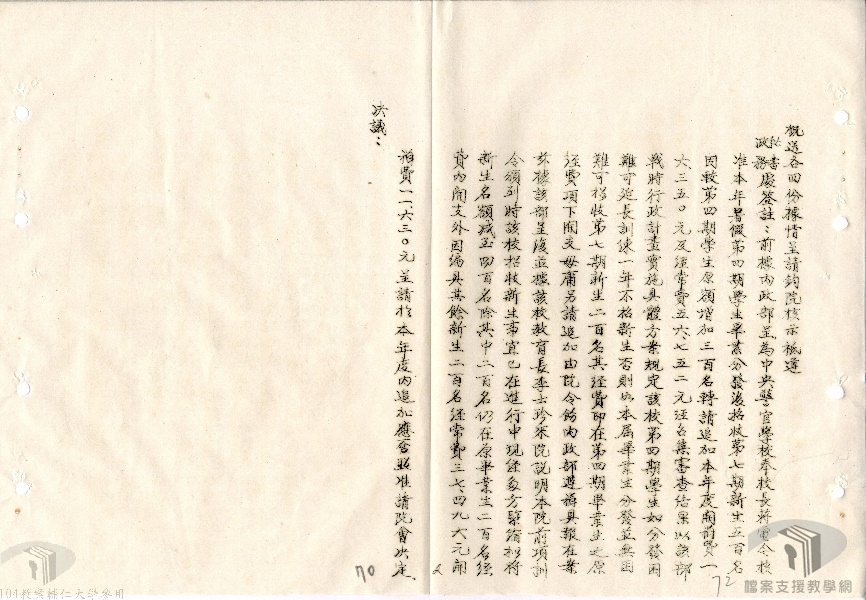 概送各四份據情呈請鈞院核示祗遵
秘書
政務處簽註：前據內政部呈為中央警官學校奉校長蔣電令核
准本年暑假第四期學生畢業分發後招收第七期新生五百名
因較第四期學生原額增加三百名轉請追加本年度開辦費一
六三五〇元及經常費五六七五二元經召集審查結果以該部
戰時行政計畫實施具體方案規定該校第四期學生如分發困
難可延長訓練一年不招新生否則如本屆畢業生分發並無困
難可招收第七期新生二百名其經費即在第四期畢業生之原
經費項下開支毋庸另請追加由院令飭內政部遵辦具報在案
茲據該部呈復並據該校教育長李士珍來院說明本院前項訓
令頒到時該校招收新生事宜已在進行中現經多方緊縮擬將
新生名額減至四百名除其中二百名仍在原畢業生二百名經
費內開支外因編具其餘新生二百名經常費三七四九六元開
辦費一一六三〇元呈請於本年度內追加應否照准請院會決定
決議：
70
72
檔案支援教學網
104教案輔仁大學參用